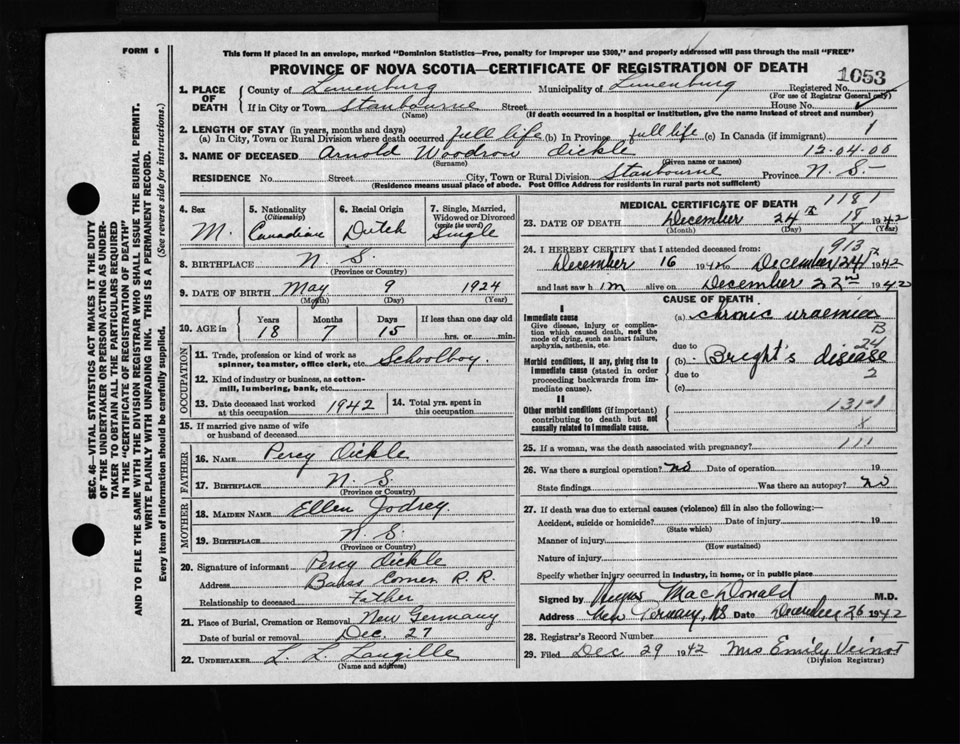 FORM 6
This form if placed in an envelope, marked "Dominion Statistics—Free, penalty for improper use $300," and properly addressed will pass through the mail "FREE"
PROVINCE OF NOVA SCOTIA—CERTIFICATE OF REGISTRATION OF DEATH
1053
1. PLACE OF DEATH County of Lunenburg Municipality of Lunenburg Registered No.
(For use of Registrar General only)
If in City or Town Stanbourne Street House No.
(Name) (If death occurred in a hospital or institution, give the name instead of street and number)
2. LENGTH OF STAY (in years, months and days)
(a) In City, Town or Rural Division where death occurred full life (b) In Province full life (c) In Canada (if immigrant) 1
3. NAME OF DECEASED Arnold Woodrow Oickle 12-04-00
(Surname) (Given name or names)
RESIDENCE No. Street City, Town or Rural Division Stanbourne Province N. S.-
(Residence means usual place of abode. Post Office Address for residents in rural parts not sufficient)
4. Sex M.
5. Nationality (Citizenship) Canadian
6. Racial Origin Dutch
7. Single, Married, Widowed or Divorced (write the word) Single
8. BIRTHPLACE N. S.
(Province or Country)
9. DATE OF BIRTH May 9 1924
(Month) (Day) (Year)
10. AGE in Years 18 Months 7 Days 15 If less than one day old hrs. or min.
OCCUPATION
11. Trade, profession or kind of work as spinner, teamster, office clerk, etc. Schoolboy.
12. Kind of industry or business, as cotton-mill, lumbering, bank, etc.
13. Date deceased last worked at this occupation 1942 14. Total yrs. spent in this occupation
15. If married give name of wife or husband of deceased
FATHER
16. NAME Percy Oickle
17. BIRTHPLACE N. S.
(Province or Country)
MOTHER
18. MAIDEN NAME Ellen Jodrey
19. BIRTHPLACE N. S.
(Province or Country)
20. Signature of informant Percy Oickle
Address Barss Corner R. R.
Relationship to deceased Father
21. Place of Burial, Cremation or Removal New Germany
Date of burial or removal Dec. 27
22. UNDERTAKER L. L. Langille
(Name and address)
MEDICAL CERTIFICATE OF DEATH
1181
23. DATE OF DEATH December 24th 18 1942
(Month) (Day) (Year)
913
24. I HEREBY CERTIFY that I attended deceased from:
December 16 1942 to December 24th 1942
and last saw him alive on December 22nd 1942
CAUSE OF DEATH
I
Immediate cause (a) chronic uraemia
Give disease, injury or complication which caused death, not the mode of dying, such as heart failure, asphyxia, asthenia, etc.
due to
B
24
Morbid conditions, if any, giving rise to immediate cause (stated in order proceeding backwards from immediate cause).
(b) Bright's disease
due to 2
(c)
II
Other morbid conditions (if important) contributing to death but not causally related to immediate cause.
131-1
25. If a woman, was the death associated with pregnancy? 111
26. Was there a surgical operation? no Date of operation 19
State findings Was there an autopsy? no
27. If death was due to external causes (violence) fill in also the following:—
Accident, suicide or homicide? Date of injury 19
(State which)
Manner of injury
(How sustained)
Nature of injury
Specify whether injury occurred in industry, in home, or in public place
Signed by MacDonald M.D.
Address New Germany, NS Date December 26 1942
28. Registrar's Record Number
29. Filed Dec 29 1942 Mrs Emily Veinot
(Division Registrar)
SEC. 46—VITAL STATISTICS ACT MAKES IT THE DUTY OF THE UNDERTAKER OR PERSON ACTING AS UNDERTAKER TO OBTAIN ALL THE PARTICULARS REQUIRED IN THE "CERTIFICATE OF REGISTRATION OF DEATH"
AND TO FILE THE SAME WITH THE DIVISION REGISTRAR WHO SHALL ISSUE THE BURIAL PERMIT.
WRITE PLAINLY WITH UNFADING INK. THIS IS A PERMANENT RECORD.
Every item of information should be carefully supplied. (See reverse side for instructions.)